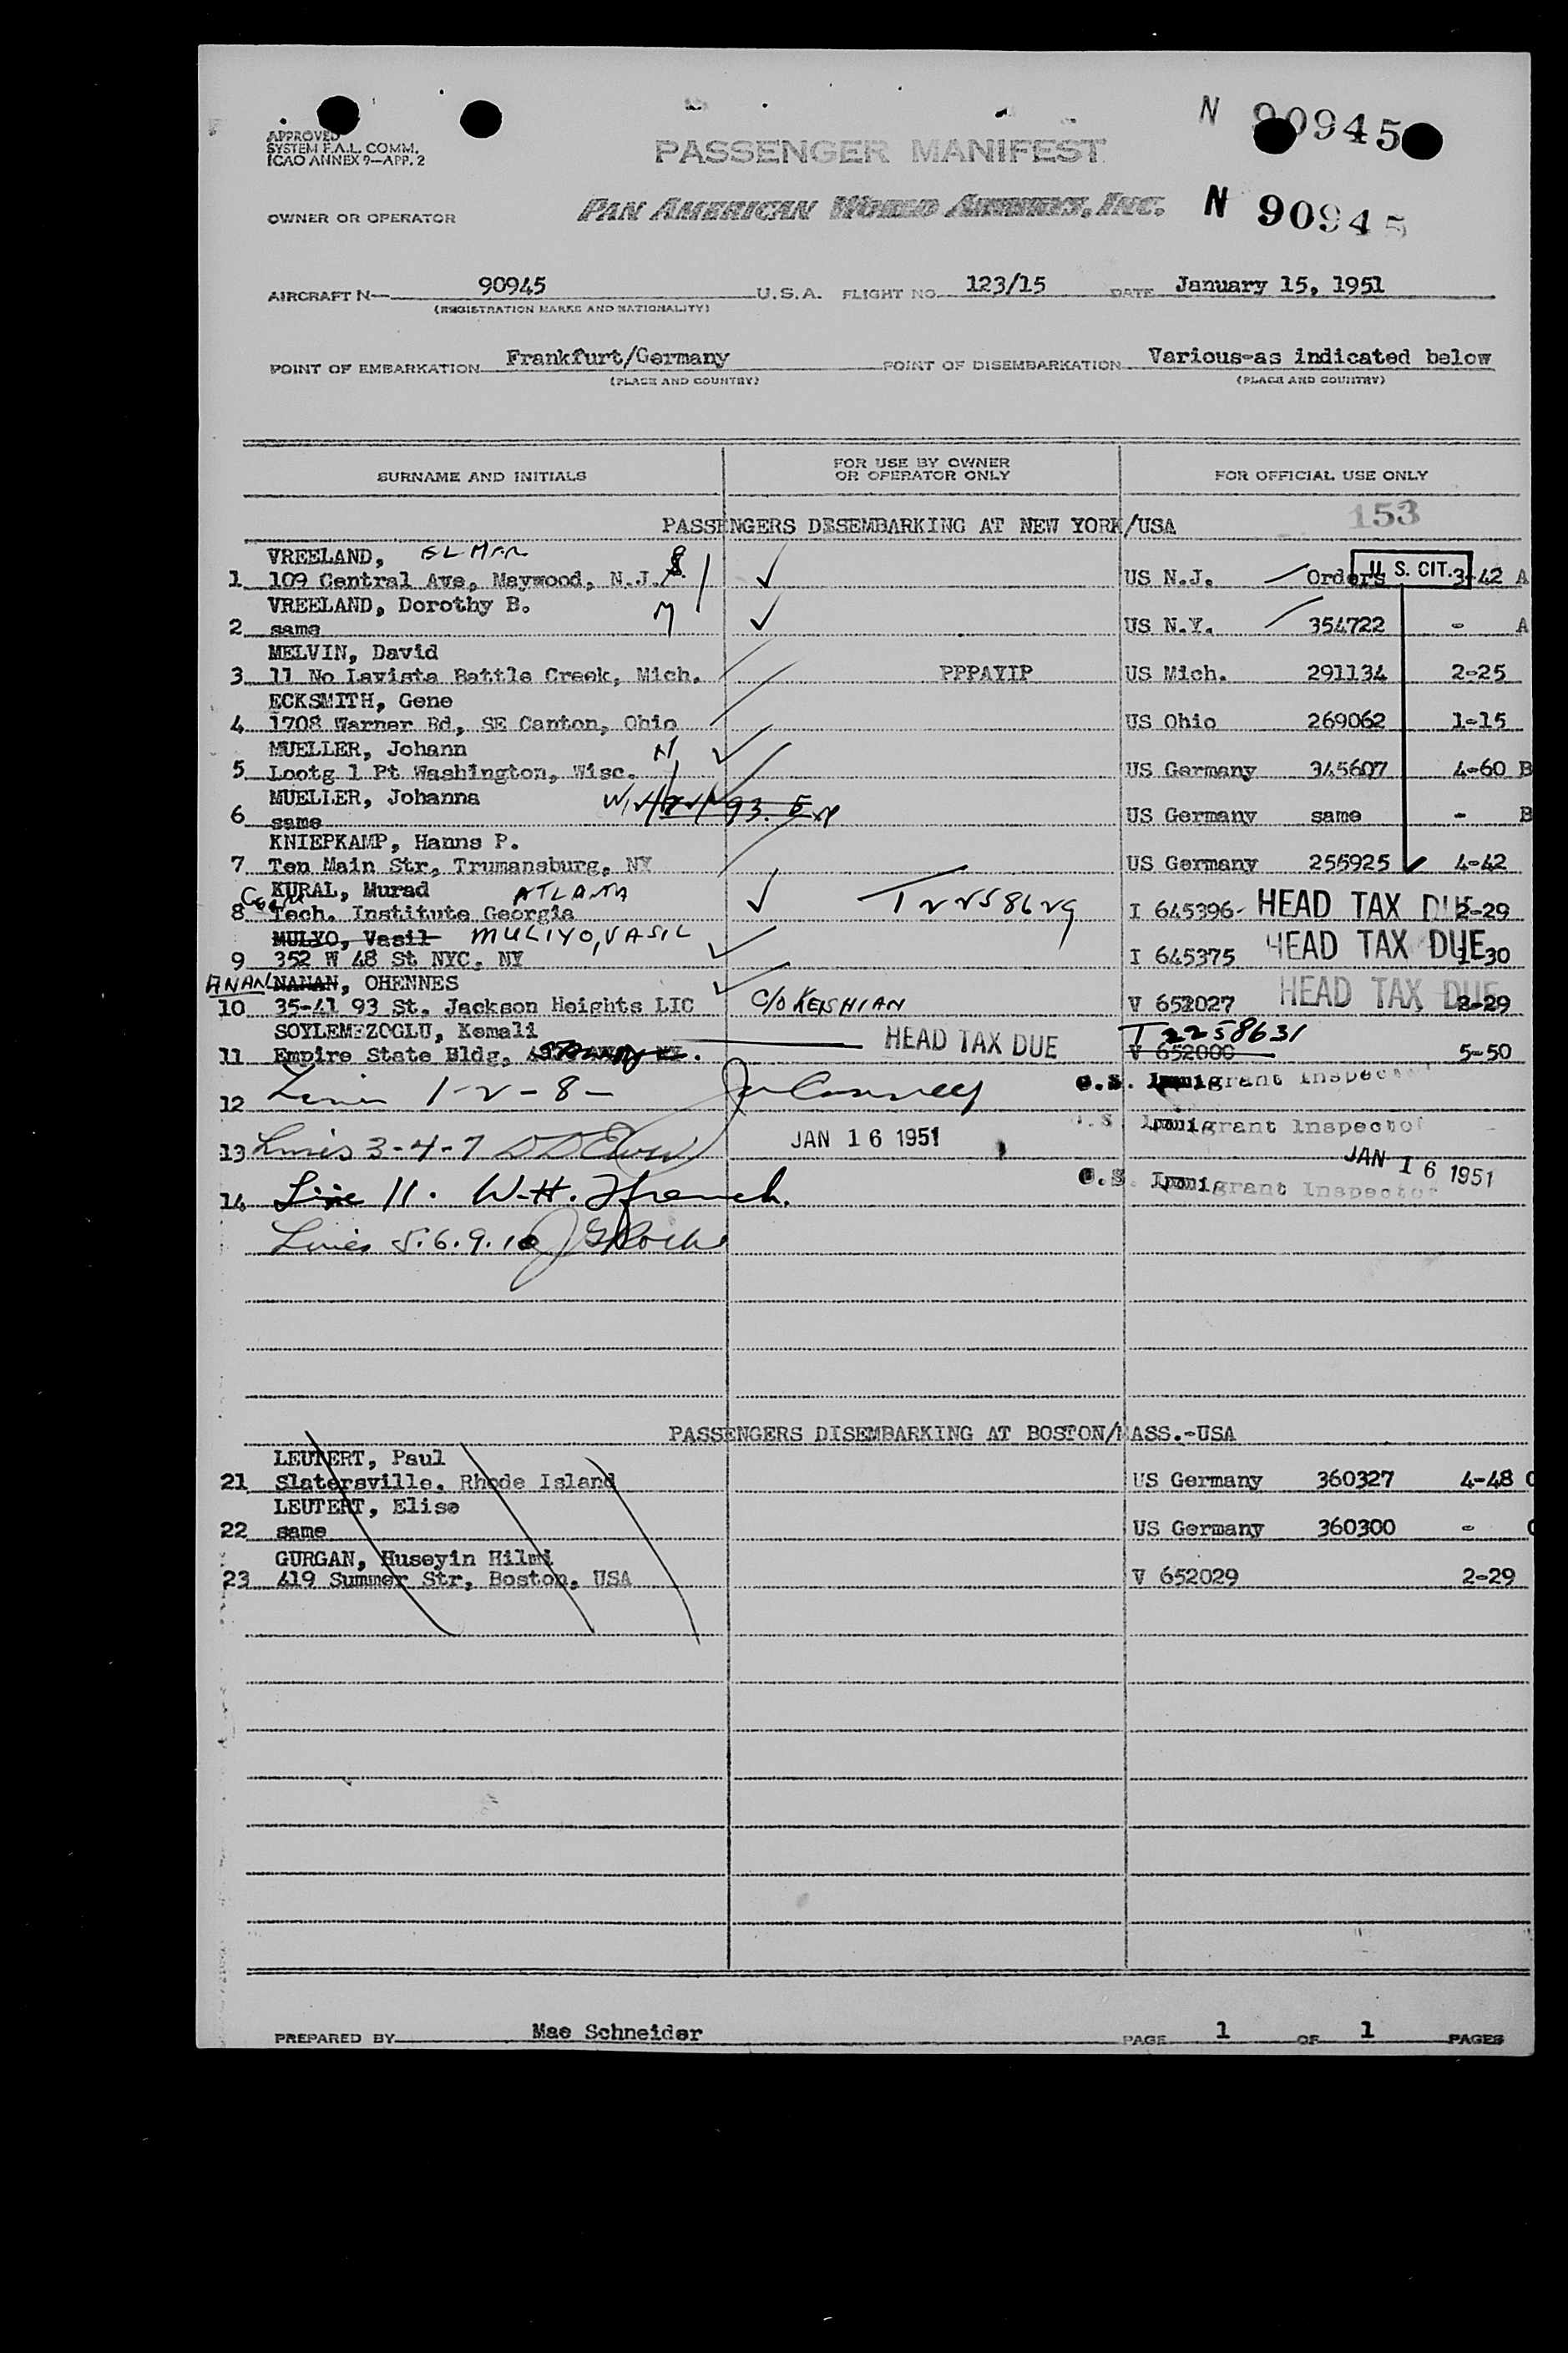 APPROVED
SYSTEM F.A.L. COMM.
ICAO ANNEX 9—APP. 2
N 90945
PASSENGER MANIFEST
OWNER OR OPERATOR PAN AMERICAN WORLD AIRWAYS, INC. N 90945
AIRCRAFT N— 90945 U.S.A. FLIGHT NO. 123/15 DATE January 15, 1951
(REGISTRATION MARKS AND NATIONALITY)
POINT OF EMBARKATION Frankfurt/Germany POINT OF DISEMBARKATION Various-as indicated below
(PLACE AND COUNTRY) (PLACE AND COUNTRY)
SURNAME AND INITIALS FOR USE BY OWNER OR OPERATOR ONLY FOR OFFICIAL USE ONLY
153
PASSENGERS DESEMBARKING AT NEW YORK/USA
VREELAND, ELMER U. S. CIT.
1 109 Central Ave, Maywood, N.J. US N.J. Orders 3-42 A
VREELAND, Dorothy B. M
2 same US N.Y. 354722 - A
MELVIN, David
3 11 No Lavista Battle Creek, Mich. PPPAYIP US Mich. 291134 2-25
ECKSMITH, Gene
4 1708 Warner Rd, SE Canton, Ohio US Ohio 269062 1-15
MUELLER, Johann M
5 Lootg 1 Pt Washington, Wisc. US Germany 345607 4-60 B
MUELLER, Johanna
6 same US Germany same - B
KNIEPKAMP, Hanns P.
7 Ten Main Str, Trumansburg, NY US Germany 255925 4-42
KURAL, Murad ATLANTA T2258629
8 Tech. Institute Georgia I 645396- HEAD TAX DUE 2-29
MULYO, Vasil MULIYO, VASIL
9 352 W 48 St NYC, NY I 645375 HEAD TAX DUE 30
ANAN NANAN, OHENNES
10 35-41 93 St. Jackson Heights LIC C/O KESHIAN V 652027 HEAD TAX DUE 2-29
SOYLEMEZOGLU, Kemali HEAD TAX DUE T2258631
11 Empire State Bldg, V 652000 5-50
12 Lines 1-2-8- U.S. Immigrant Inspector
13 Lines 3-4-7 JAN 16 1951 U.S. Immigrant Inspector
JAN 16 1951
14 Line 11. W.H. French. U.S. Immigrant Inspector
Lines 5.6.9.10
PASSENGERS DISEMBARKING AT BOSTON/MASS.-USA
LEUTERT, Paul
21 Slatersville, Rhode Island US Germany 360327 4-48 C
LEUTERT, Elise
22 same US Germany 360300 - C
GURGAN, Huseyin Hilmi
23 419 Summer Str, Boston, USA V 652029 2-29
PREPARED BY Mae Schneider PAGE 1 OF 1 PAGES